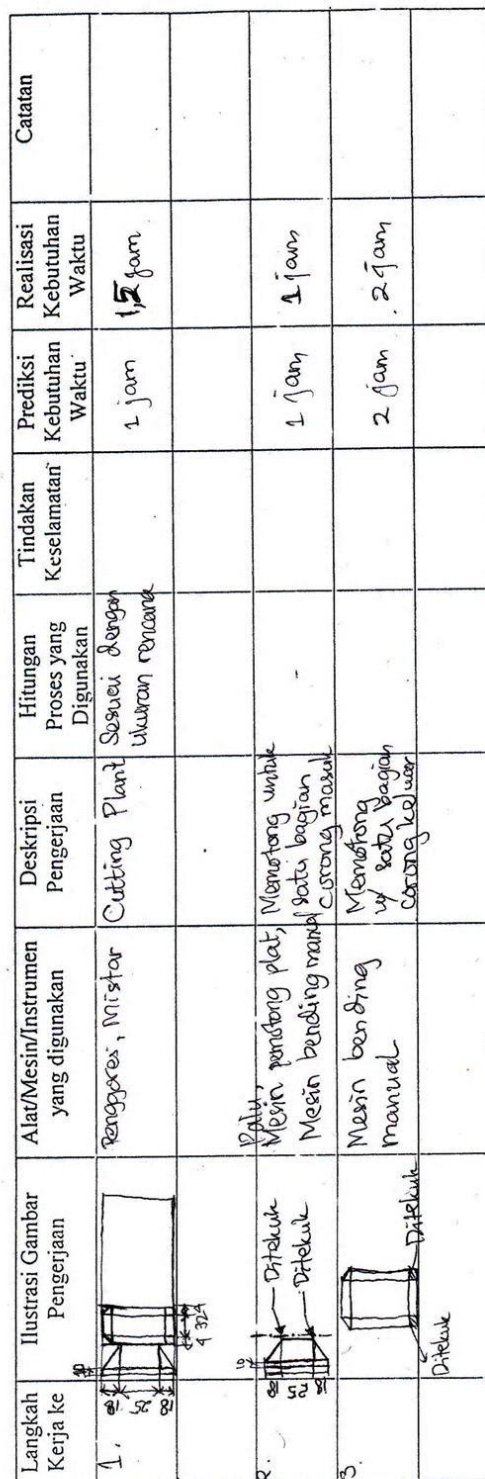 Langkah
Kerja ke
Ilustrasi Gambar
Pengerjaan
Alat/Mesin/Instrumen
yang digunakan
Deskripsi
Pengerjaan
Hitungan
Proses yang
Digunakan
Tindakan
Keselamatan
Prediksi
Kebutuhan
Waktu
Realisasi
Kebutuhan
Waktu
Catatan
1.
10
18 25 18
4 32 4
Penggores, Mistar
Cutting Plant
Sesuei dengan
ukuran rencana
1 jam
1,5 jam
2.
10
18 25 18
Ditekuk
Ditekuk
Palu,
Mesin pemotong plat,
Mesin bending manual
Memotong untuk
satu bagian
corong masuk
1 jam
1 jam
3.
Ditekuk
Ditekuk
Mesin bending
manual
Memotong
u/ satu bagian
corong keluar
2 jam
2 jam